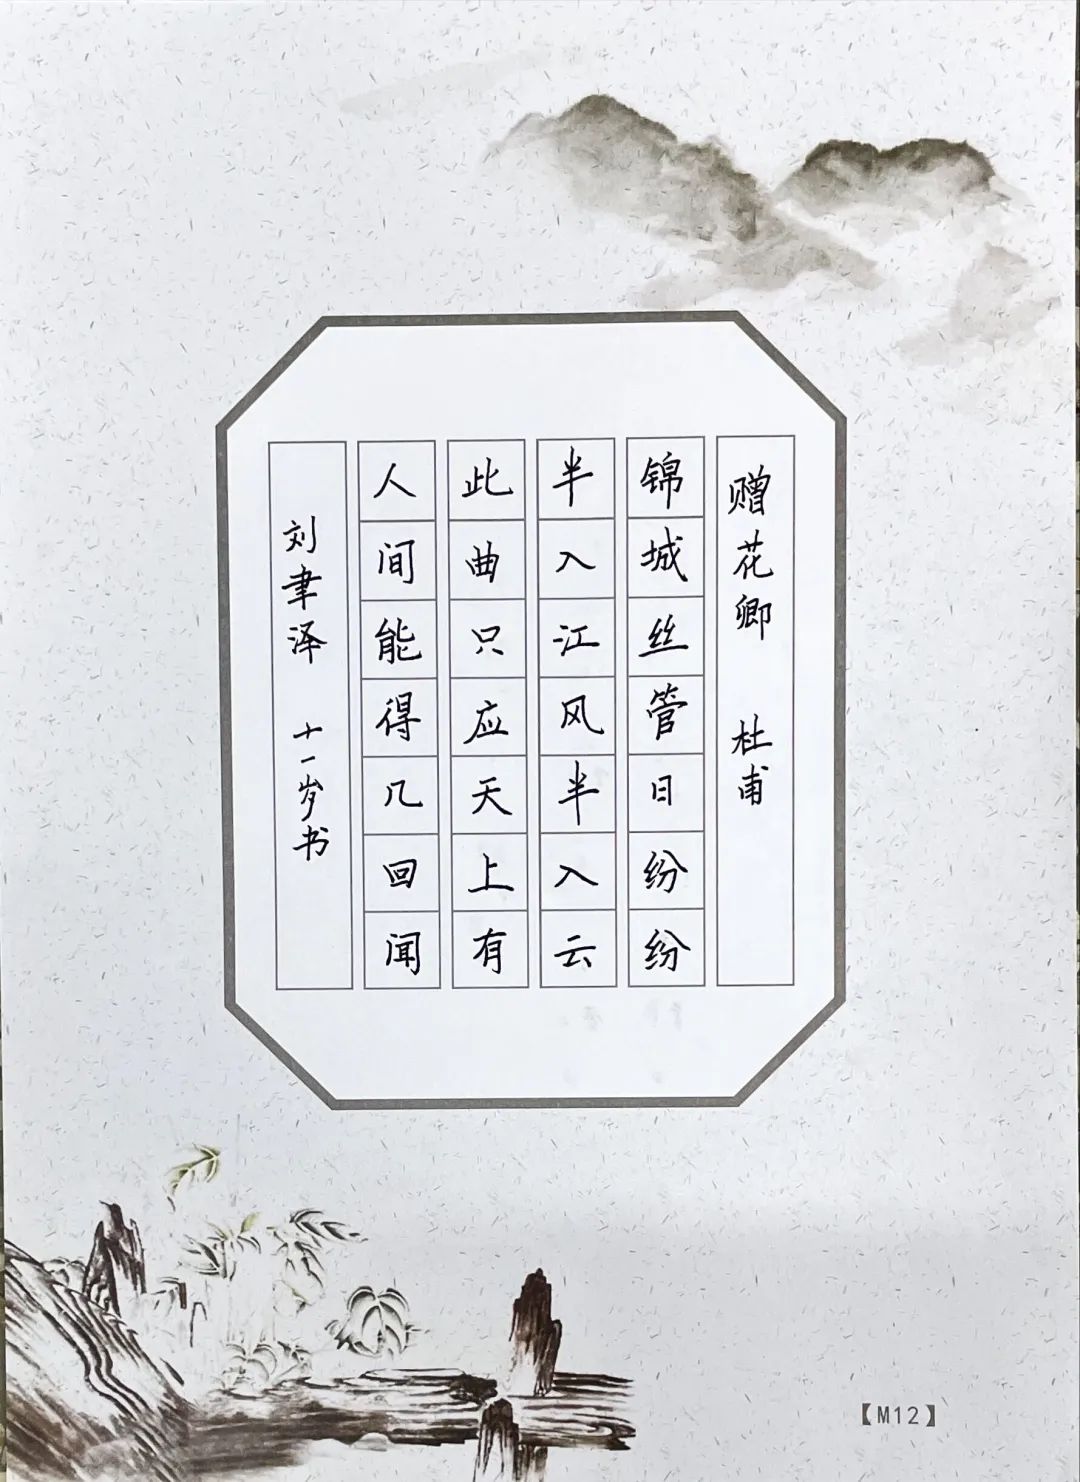 赠花卿 杜甫
锦城丝管日纷纷
半入江风半入云
此曲只应天上有
人间能得几回闻
刘聿泽 十一岁书
【M12】